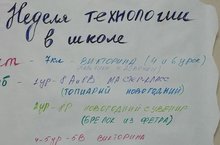 Неделя технологии
в школе
7кл - викторина (4 и 6 урок)
1ур - 8А и 8В мастер-класс
(топиарий новогодний)
2ур - 8Р новогодний сувенир
(брелок из фетра)
4-5ур - 5В викторина